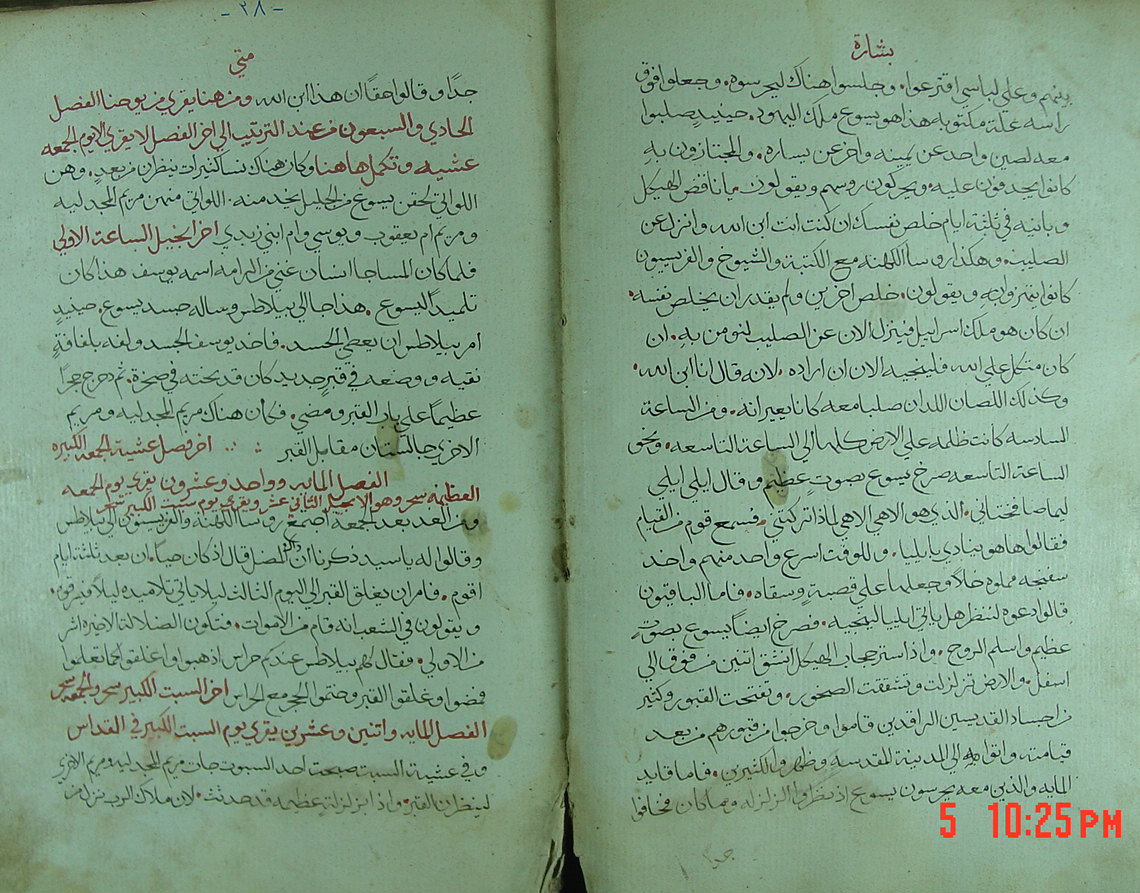 بشارة
بينهم وعلي لباسي اقترعوا، وجلسوا هناك ليحرسوه، وجعلوا فوق
راسه علة مكتوبه هذا هو يسوع ملك اليهود. حينيذ صلبوا
معه لصين واحد عن يمينه واخر عن يساره، والمجتازون به
كانوا يجدفون عليه، ويحركون روسهم ويقولون يا ناقض الهيكل
وبانيه في ثلثة ايام خلص نفسك ان كنت انت ابن الله، وانزل عن
الصليب، وهكذا روسا الكهنه مع الكتبة والشيوخ والفريسيون
كانوا يهزون به ويقولون، خلص اخرين ولم يقدر ان يخلص نفسه،
ان كان هو ملك اسراييل فينزل الان عن الصليب لنومن به، ان
كان متكل علي الله فلينجيه الان ان اراده، لانه قال انا ابن الله،
وكذلك اللصان اللدان صلبا معه كانا يعيرانه، ومن الساعة
السادسه كانت ظلمه علي الارض كلها الي الساعة التاسعه، ونحو
الساعة التاسعه صرخ يسوع بصوت عظيم وقال ايلي ايلي
ليما صافختاني، الذي هو الاهي الاهي لماذا تركتني، فسمع قوم من القيام
فقالوا ها هو ينادي بايليا، وللوقت اسرع واحد منهم واخد
سفنجه مملوه خلا وجعلها علي قصبة وسقاه، فاما الباقيون
قالوا دعوه لننظر هل ياتي ايليا لينجيه، فصرخ ايضا يسوع بصوت
عظيم واسلم الروح، واذا ستر حجاب الهيكل انشق اتنين من فوق الي
اسفل، والارض تزلزلت وتشققت الصخور، وتفتحت القبور وكثير
من اجساد القديسين الراقدين قاموا وخرجوا من قبورهم من بعد
قيامته، واتوا الي المدينة المقدسه وظهروا لكثيرين، فاما قايد
المايه والذين معه يحرسون يسوع اذ نظروا الزلزله وما كان فخافوا
جدا
5 10:25PM
-٢٨-
متي
جدا وقالوا حقا ان هذا ابن الله، ومن هنا يقري من يوحنا الفصل
الحادي والسبعون من عند الترتيب الي اخر الفصل لا يقري الا يوم الجمعه
عشيه وتكمل هاهنا وكان هناك نسا كثيرات ينظرن من بعد، وهن
اللواتي لحقن يسوع من الجليل يخدمنه، اللواتي منهن مريم المجدليه
ومريم ام يعقوب ويوسي وام ابني زبدي اخر انجيل الساعة الاولي
فلما كان المسا جا انسان غني من الرامه اسمه يوسف هذا كان
تلميدا ليسوع، هذا جا الي بيلاطس وساله جسد يسوع، حينيذ
امر بيلاطس ان يعطي الجسد، فاخد يوسف الجسد ولفه بلفافة
نقيه ووضعه في قبر جديد كان قد نحته في صخرة، ثم دحرج حجرا
عظيما علي باب القبر ومضي، فكان هناك مريم المجدليه ومريم
الاخري جالستان مقابل القبر اخر فصل عشية الجمعه الكبيره
الفصل المايه وواحد وعشرون يقري يوم الجمعه
العظيمه سحر وهو الانجيل التاني عشر ويقري يوم سبت الكبير سحر
ومن الغد بعد الجمعة اجتمع روسا الكهنه والفريسيون الي بيلاطس
وقالوا له يا سيد ذكرنا ان ذاك المضل قال اذ كان حيا، ان بعد ثلثة ايام
اقوم، فامر ان يغلق القبر الي اليوم الثالث ليلا ياتي تلاميده ليلا فيسرقوه،
ويقولون في الشعب انه قام من الاموات، فتكون الضلالة الاخيره اشر
من الاولي، فقال لهم بيلاطس عندكم حراس اذهبوا واغلقوا كما تعلموا
فمضوا وغلقوا القبر وختموا الحجر مع الحراس اخر السبت الكبير سحر والجمعه سحر
الفصل المايه واتنين وعشرين يقري يوم السبت الكبير في القداس
وفي عشية السبت صبحت احد السبوت جات مريم المجدليه ومريم الاخري
لينظران القبر، واذا بزلزلة عظيمه قد حدثت، لان ملاك الرب نزل من